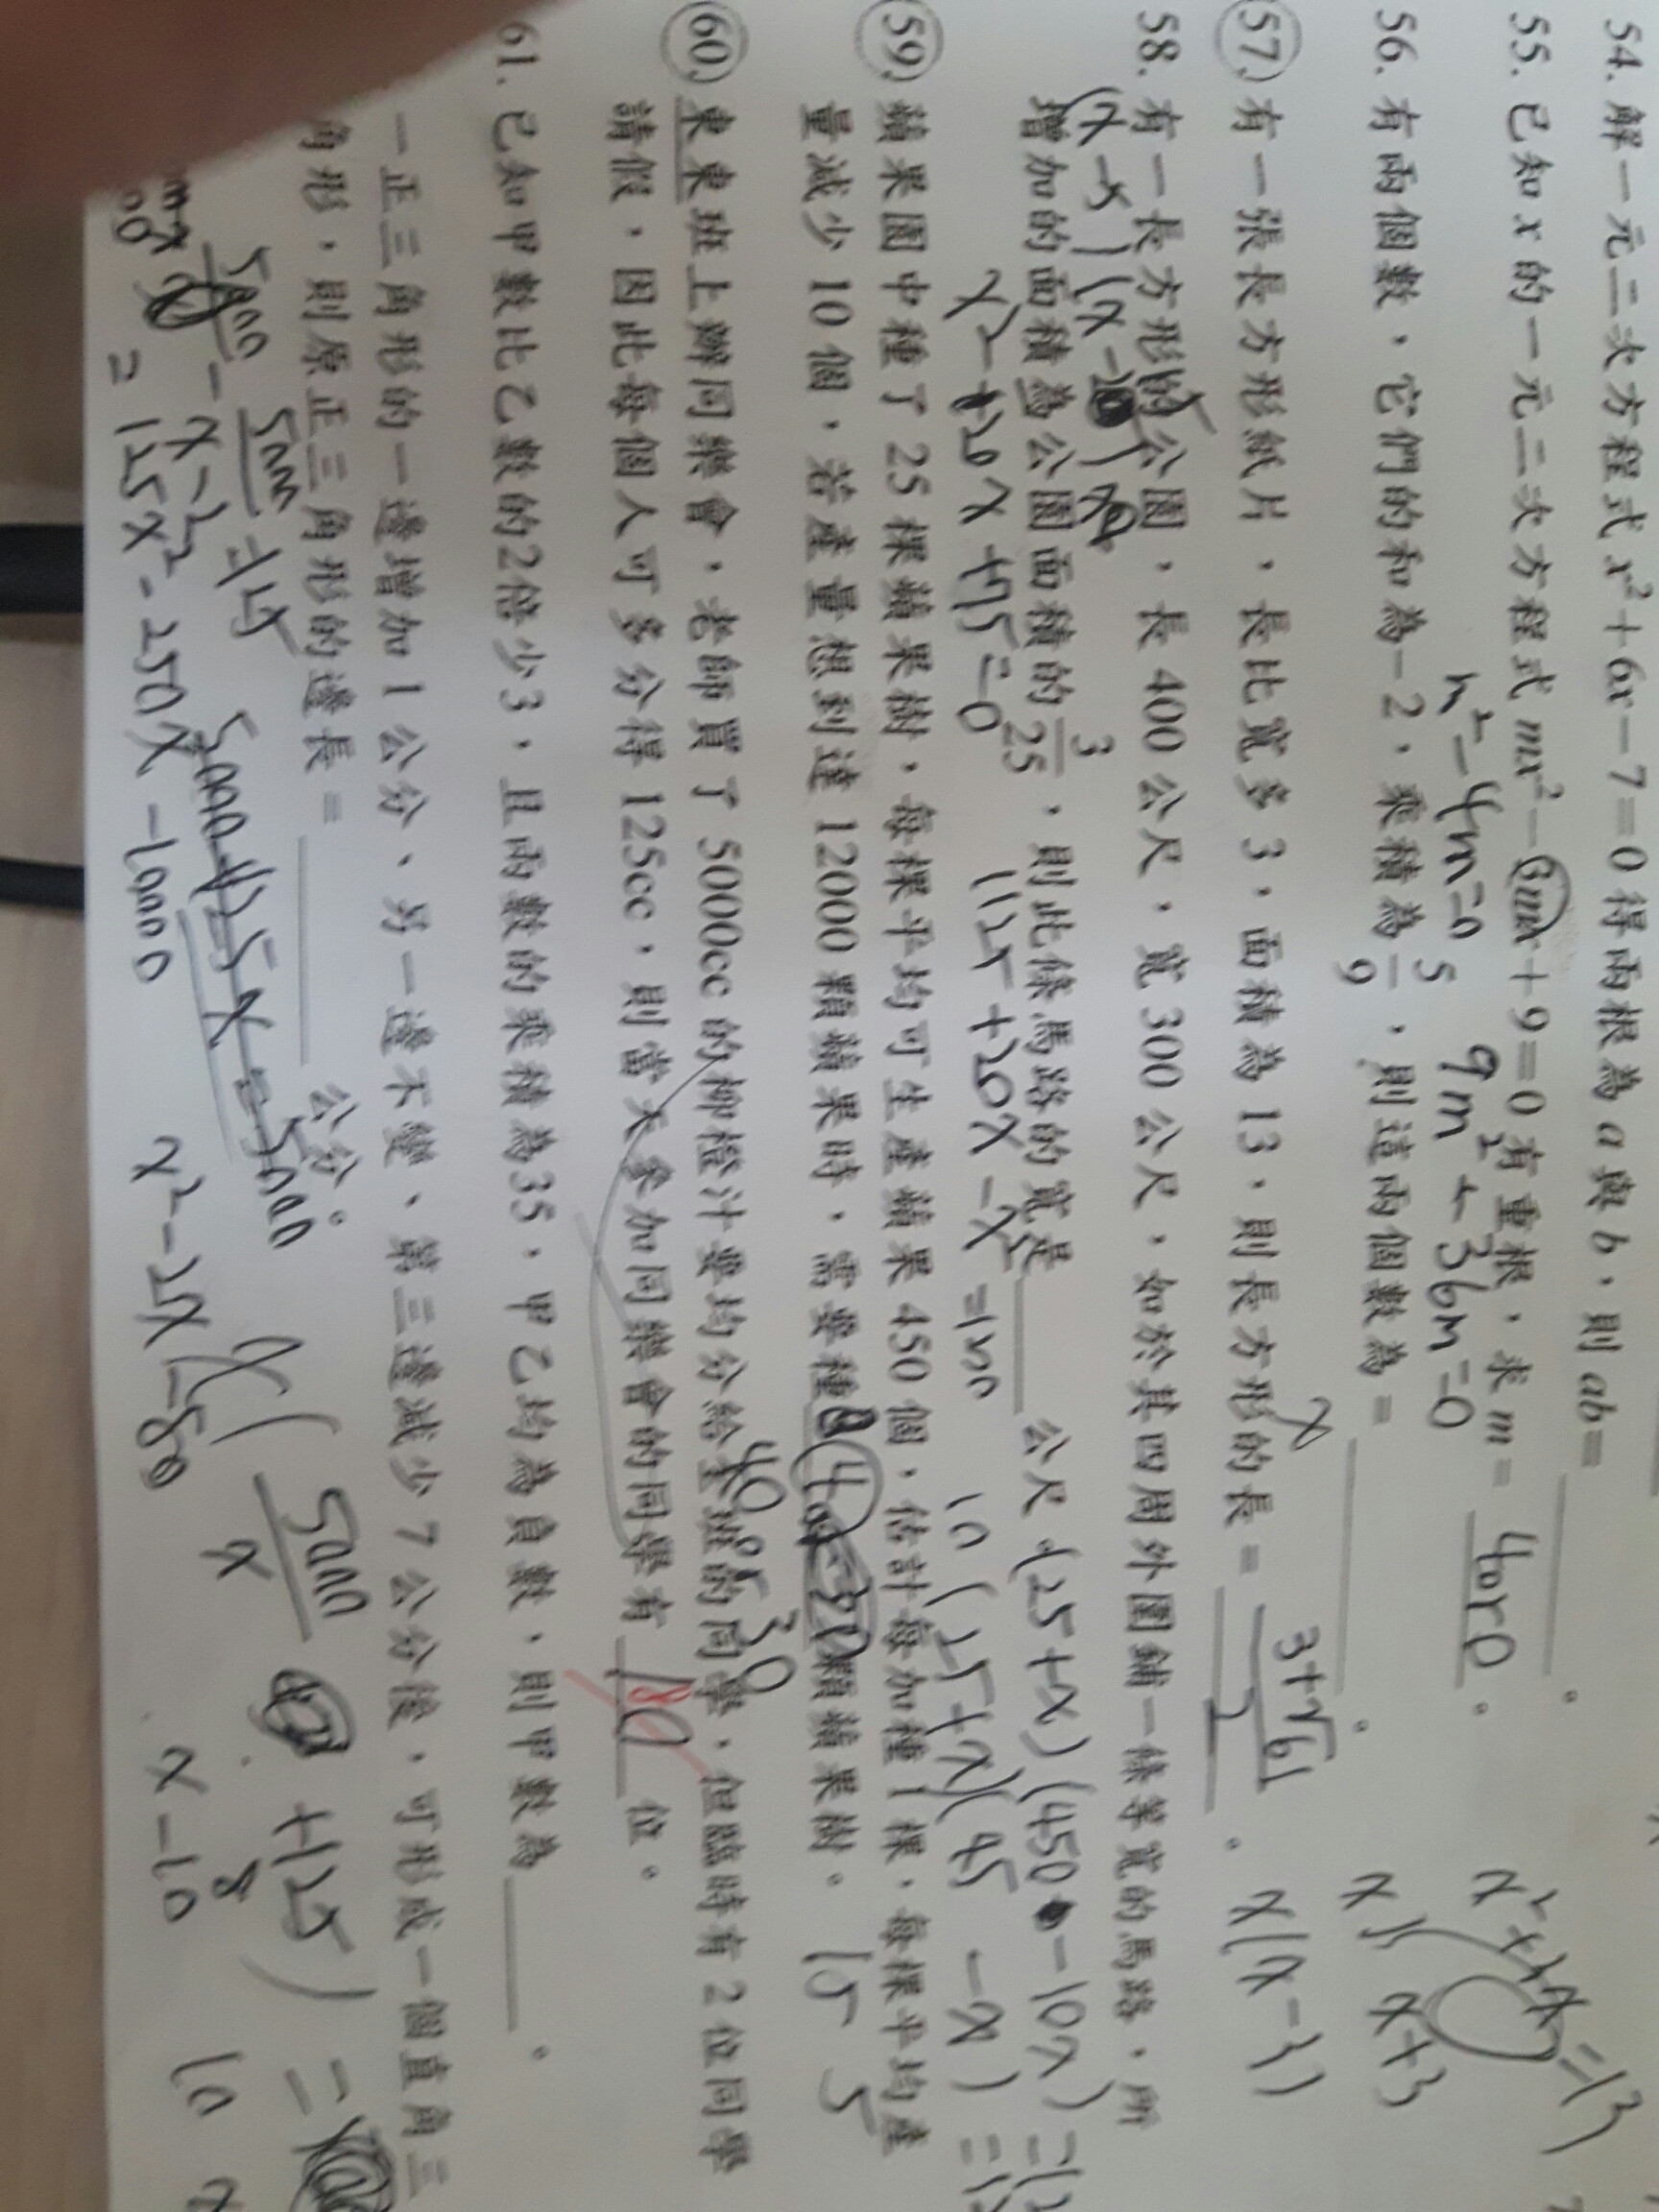 54. 解一元二次方程式 x²+6x-7=0 得兩根為 a 與 b，則 ab= 。
55. 已知 x 的一元二次方程式 mx²-3mx+9=0 有重根，求 m= 4or0 。
m²-4m=0 9m²-36m=0
56. 有兩個數，它們的和為-2，乘積為 5/9，則這兩個數為= 。
x x+3
57. 有一張長方形紙片，長比寬多 3，面積為 13，則長方形的長= (3+√61)/2 。
x(x-3)
58. 有一長方形的公園，長 400 公尺，寬 300 公尺，如於其四周外圍鋪一條等寬的馬路，所
增加的面積為公園面積的 3/25，則此條馬路的寬是 公尺
(25+x)(450-10x)
x²-20x+75=0 1125+20x-x²=1200
59. 蘋果園中種了 25 棵蘋果樹，每棵平均可生產蘋果 450 個，估計每加種 1 棵，每棵平均產
量減少 10 個，若產量想到達 12000 顆蘋果時，需要種 顆蘋果樹。 15 5
40 or 30
60. 東東班上辦同樂會，老師買了 5000cc 的柳橙汁要均分給全班的同學，但臨時有 2 位同學
請假，因此每個人可多分得 125cc，則當天參加同樂會的同學有 位。
61. 已知甲數比乙數的2倍少3，且兩數的乘積為35，甲乙均為負數，則甲數為 。
一正三角形的一邊增加 1 公分、另一邊不變、第三邊減少 7 公分後，可形成一個直角三
角形，則原正三角形的邊長= 公分。
5000/x +125
=125x²-250x-10000
x²-2x-80
x -10
8